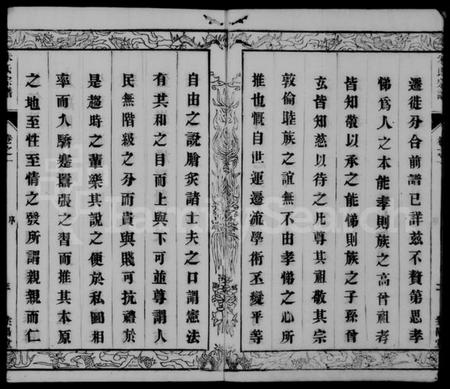 遷徙分合前譜已詳茲不贅第思孝
悌爲人之本能孝則族之高曾祖考
皆知敬以承之能悌則族之子孫曾
玄皆知慈以待之凡尊其祖敬其宗
敦倫睦族之誼無不由孝悌之心所
推也慨自世運遷流學術丕變平等
自由之說膾炙諸士夫之口謂憲法
有其和之目而上與下可並尊謂人
民無階級之分而貴與賤可抗禮於
是趨時之輩樂其說之便於私圖相
率而入驕蹇囂張之習而推其本原
之地至性至情之發所謂親親而仁
卷之一
序